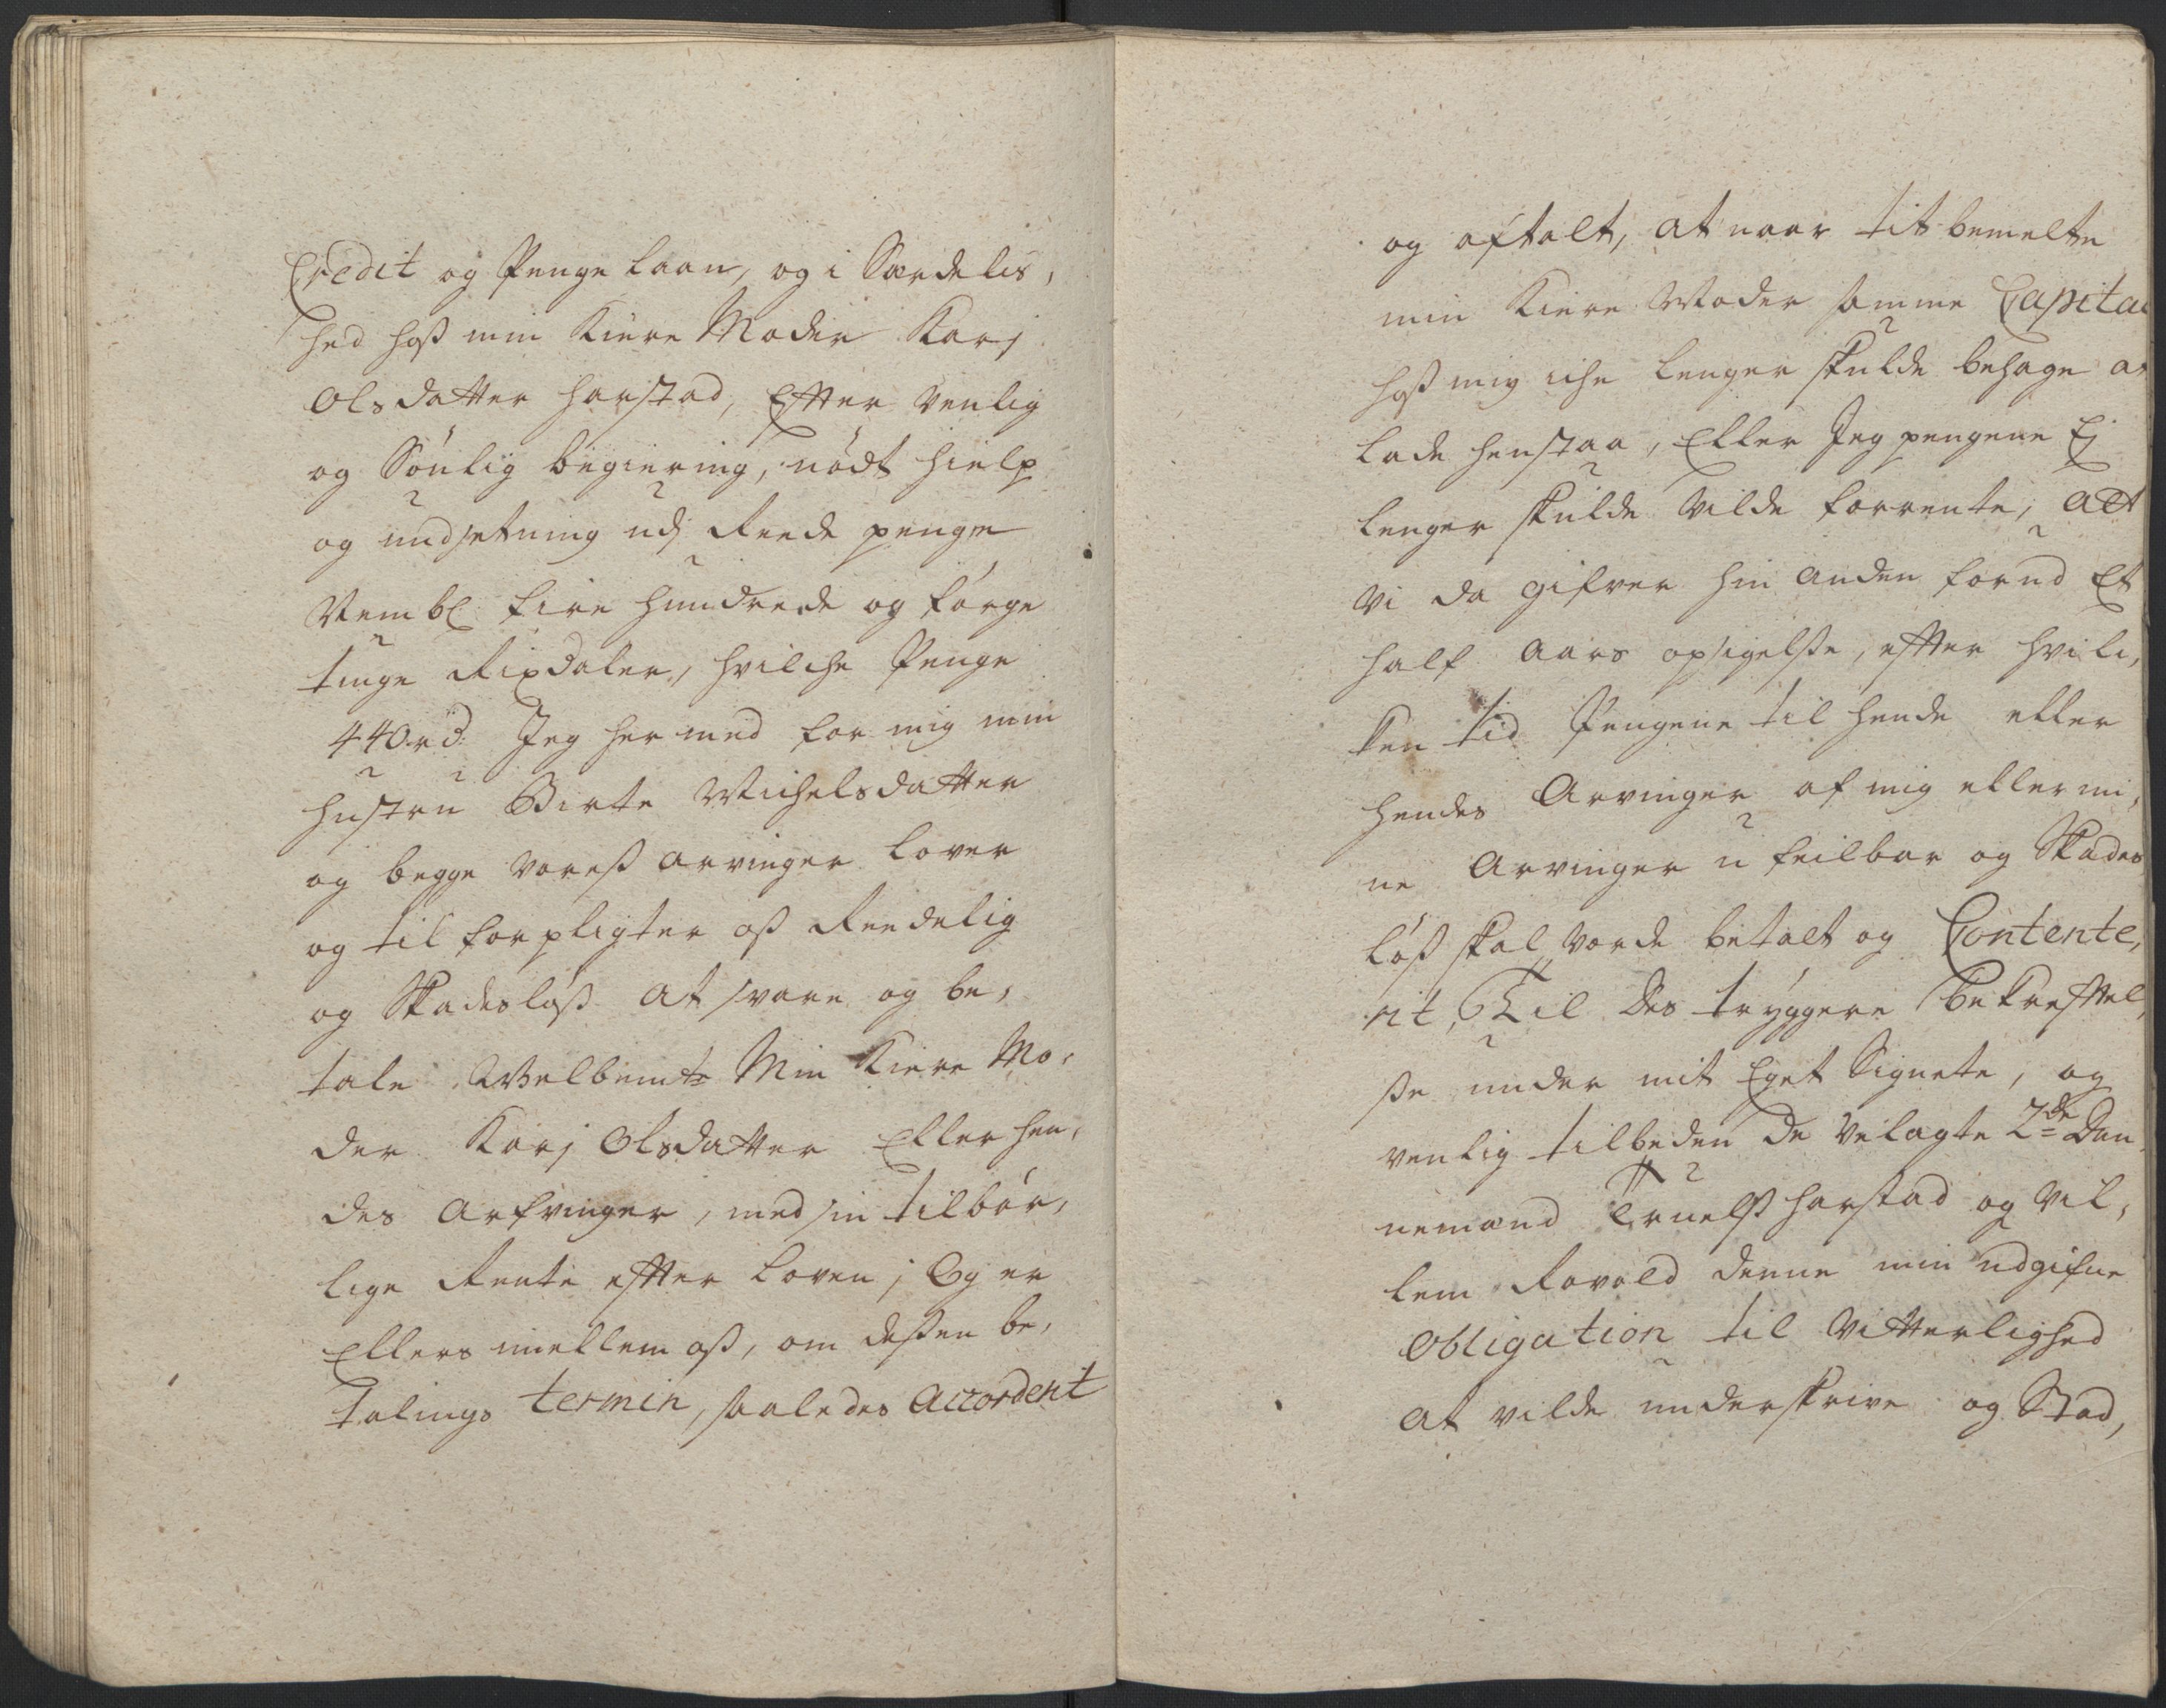 Credit og Penge laan, og i Særdelis,
hed hoß min Kiere Moder Karj
Olsdatter harstad, Efter venlig
og Sönlig begiering, nödt hielp
og undsetning udj Reede penge
Nembl: fire hundrede og förge
tiuge Rixdaler, hvilche Penge
440rd: Jeg hermed for mig min
hustru Birte Michelsdatter
og begge voreß arvinger lover
og til forpligter oß Reedelig
og Skadesløß at svare og be,
tale Velbemte Min Kiere Mo,
der Karj Olsdatter Eller hen,
des Arfvinger, med sin tilbör,
lige Rente efter loven; Og er
Ellers imellem oß, om deßen be,
talings termin, saaledes Accordert
og aftalt, at naar tit bemelte
min Kiere Moder samme Capital
hoß mig iche lenger skulde behage at
lade henstaa, Eller Jeg pengene Ej
lenger skulde vilde forrente, att
vi da gifver hin anden forud Et
half aars opsigelße, efter hvil,
ken tid Pengene til hende eller
hendes Arvinger af mig eller mi,
ne Arvinger u feilbar og Skades
löß skal vorde betalt og Contente,
rit, Til des tryggere bekreftel,
ße under mit Eget Signete, og
venlig tilbeden de velagte 2de Dan,
nemænd Truelß harstad og Vil,
lem Rovold denne min udgifne
Obligation til Vitterlighed
at vilde underskrive og Stad,